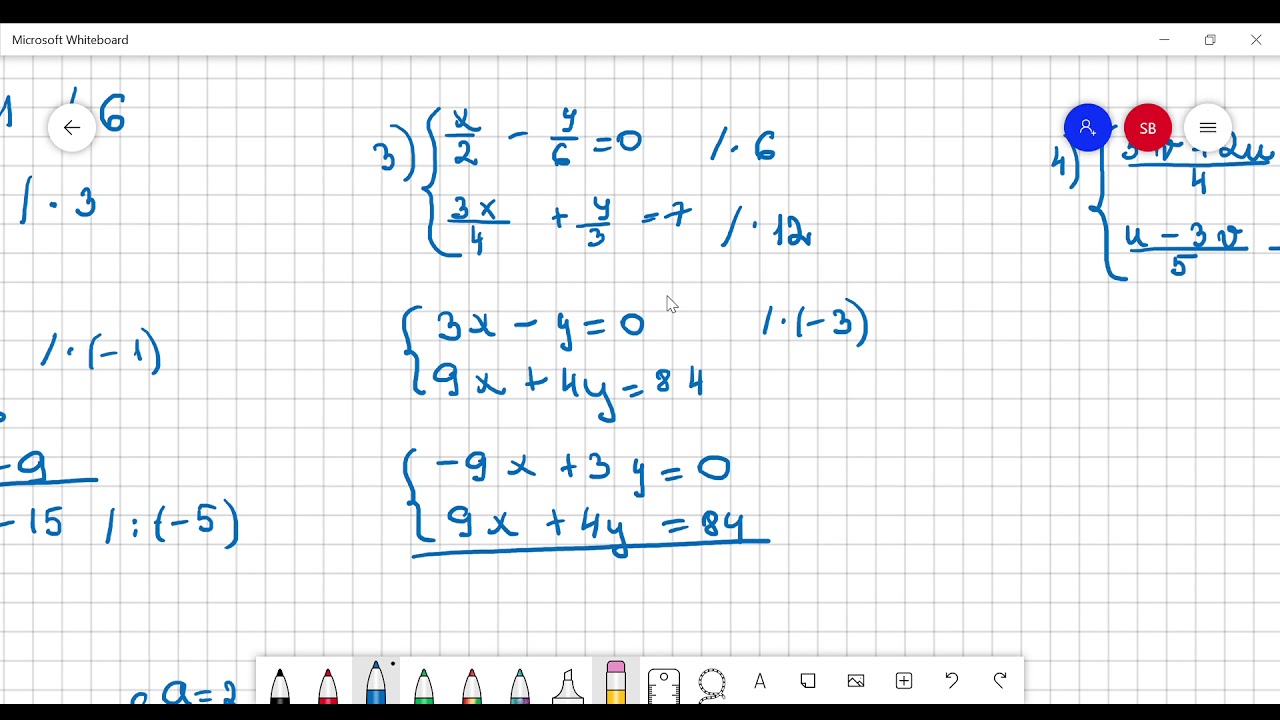 Microsoft Whiteboard
1 / 6
/ · 3
/ · (-1)
-9
-15 / : (-5)
a = 2
3) { x/2 - y/6 = 0 / · 6
3x/4 + y/3 = 7 / · 12
{ 3x - y = 0 / · (-3)
9x + 4y = 84
{ -9x + 3y = 0
9x + 4y = 84
SB
4) { 3v + 2u / 4
u - 3v / 5 -
A